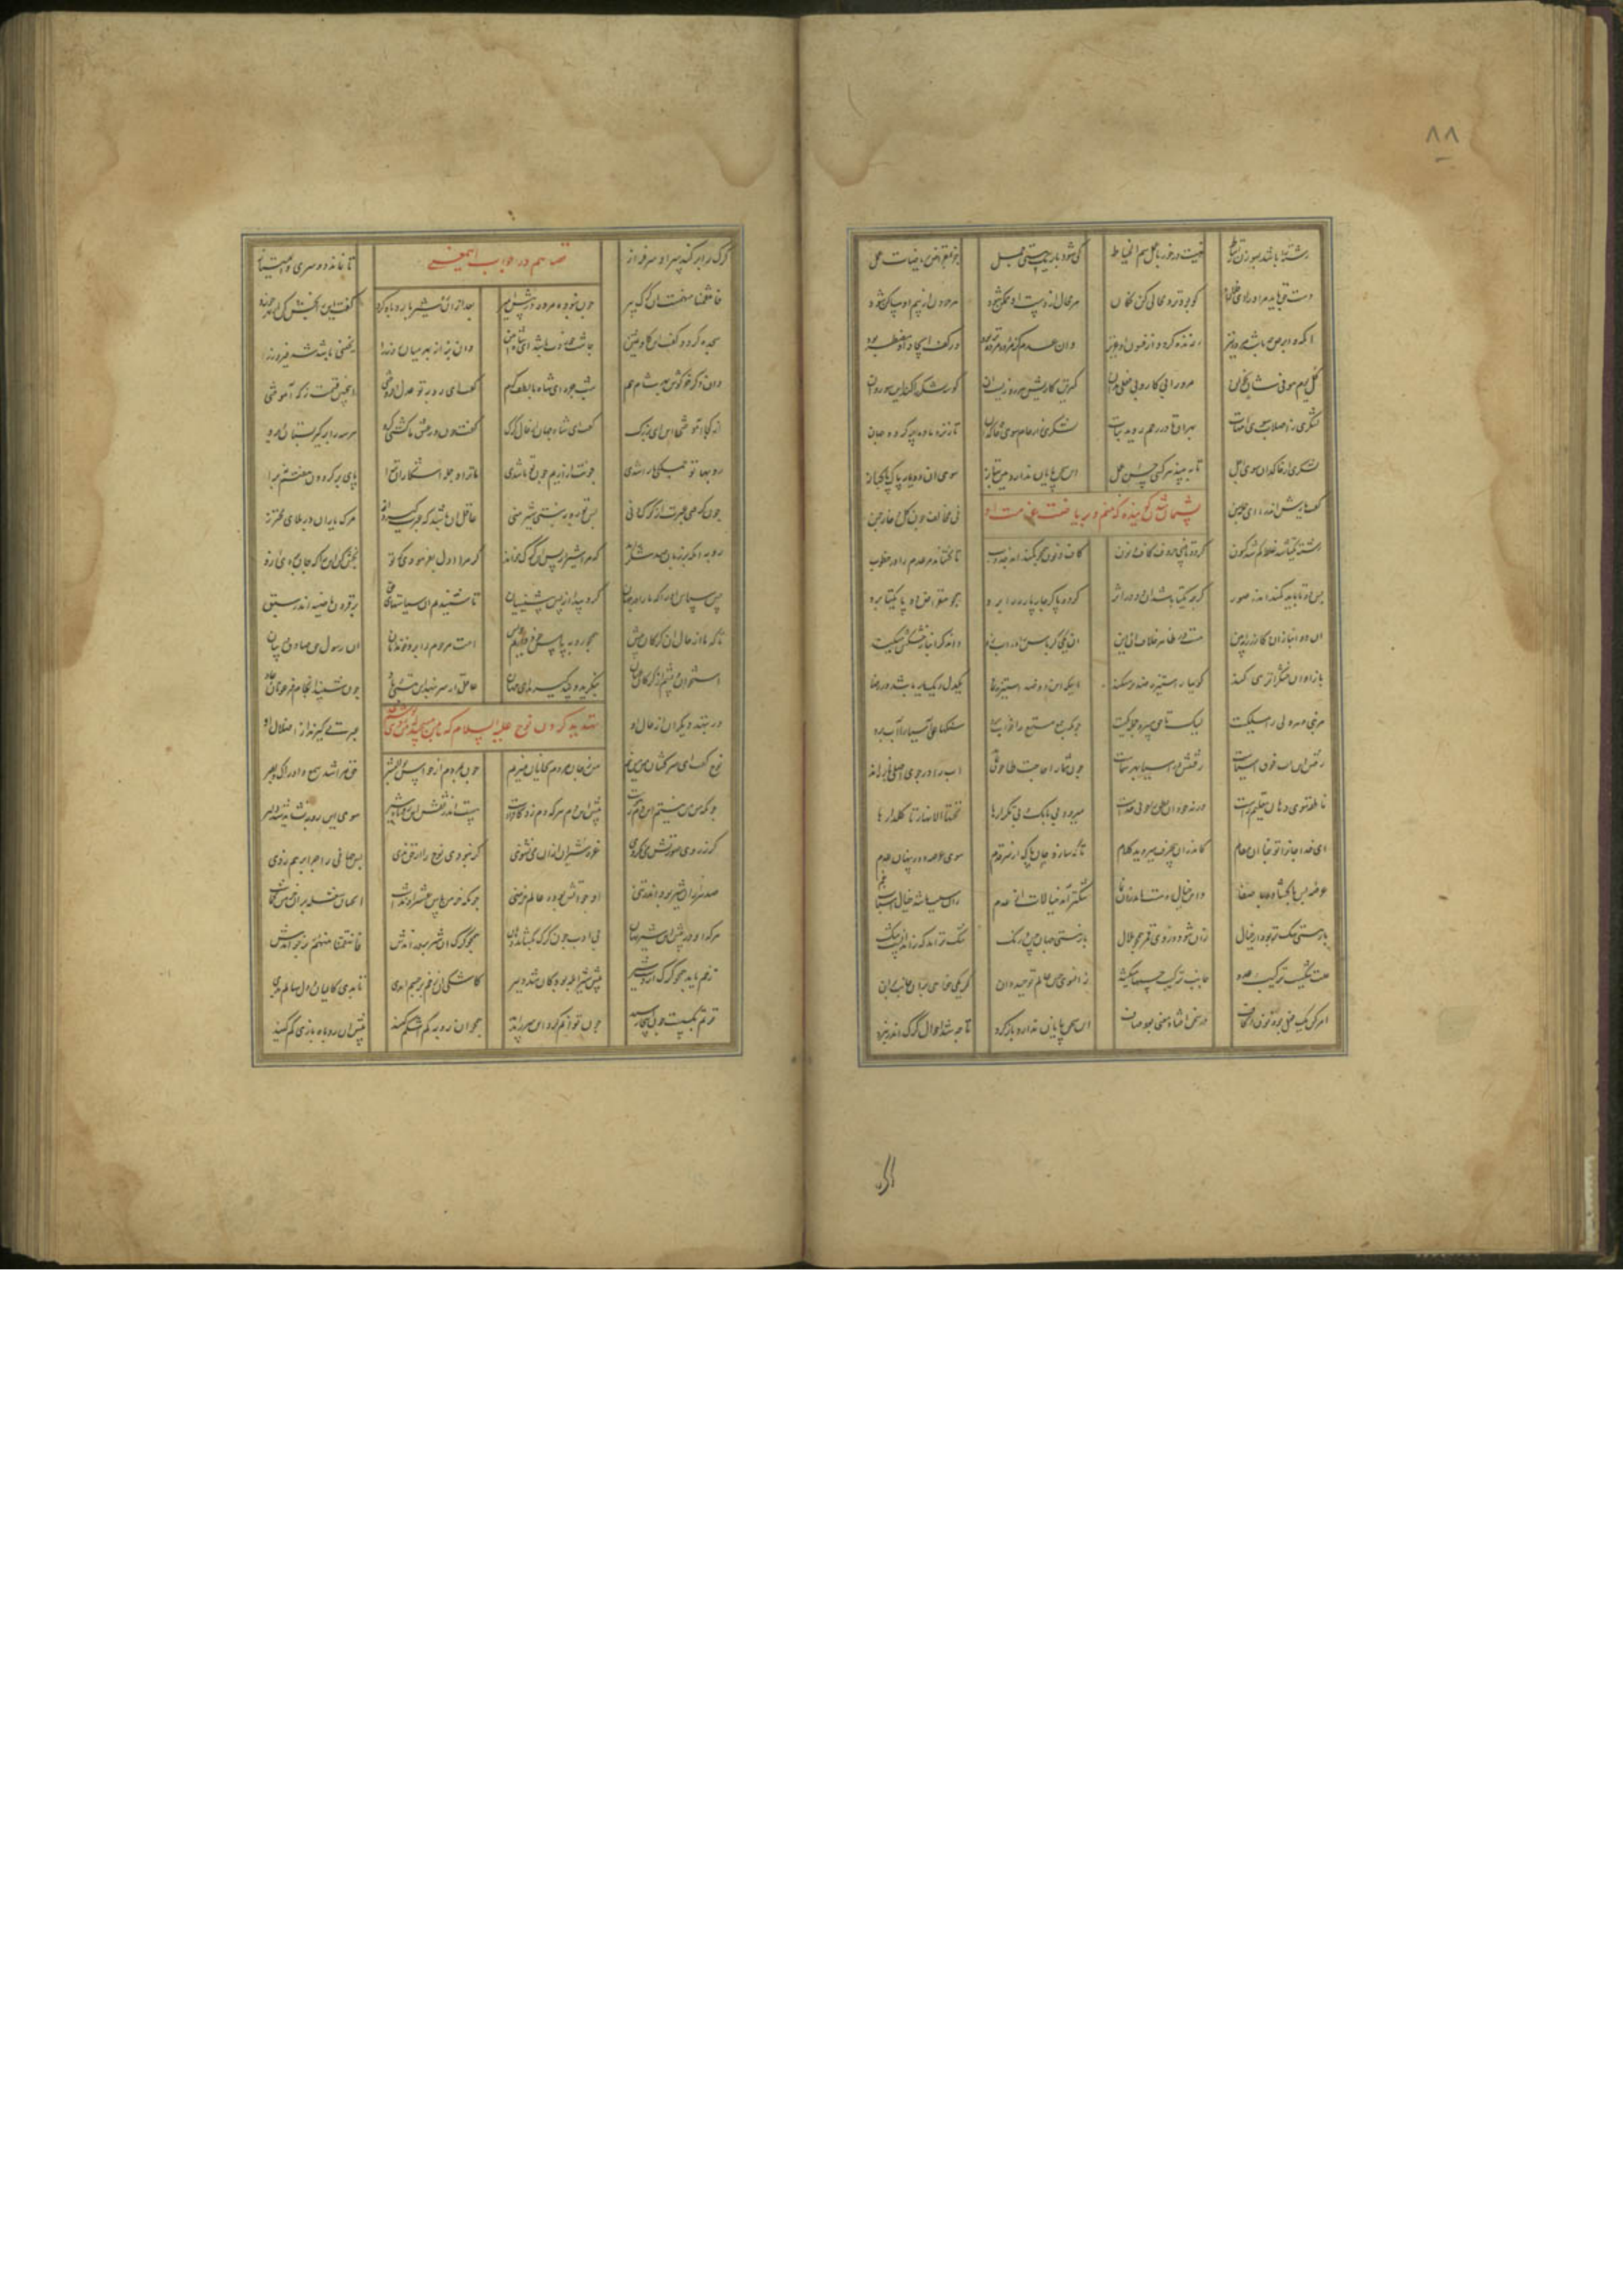 ۸۸
رشته را باشد بسوزن ارتباط نیست درخور با جمل سم الخیاط کی شود باریک هستی جمل جز بمقراض ریاضات و عمل
دست حق باید مر آنرا ای فلان کو بود بر هر محالی کن فکان هر محال از دست او ممکن شود هر حرون از بیم او ساکن شود
اکمه و ابرص چه باشد مرده نیز زنده گردد از فسون آن عزیز وان عدم کز مرده مرده‌تر بود در کف ایجاد او مضطر بود
کل یوم هو فی شان بخوان مرورا بی کار و بی فعلی مدان کمترین کاریش هر روز است آن کو سه لشکر را کند این سو روان
لشکری ز اصلاب سوی امهات بهر آن تا در رحم روید نبات لشکری ز ارحام سوی خاکدان تا ز نر و ماده پر گردد جهان
لشکری از خاکدان سوی اجل تا ببیند هر کسی حسن عمل این سخن پایان ندارد هین بتاز سوی آن دو یار پاک پاکباز
گفت یارش کاندرا ای جمله من نی مخالف چون گل و خار چمن
رشته یکتا شد غلط کم شو کنون گر دو تا بینی حروف کاف و نون کاف و نون همچون کمند آمد جذوب تا کشاند مر عدم را در خطوب
پس دو تا باید کمند اندر صور گرچه یکتا باشد آن دو در اثر گر دو پا گر چار پا ره را برد همچو مقراض دو تا یکتا برد
آن دو انبازان گازر را ببین هست در ظاهر خلاف آن و این آن یکی کرباس را در آب زد وان دگر انباز خشکش میکند
باز او آن خشک را تر می کند گوییا ز استیزه ضد بر می تند لیک این دو ضد استیزه نما یکدل و یک کار باشد در رضا
هر نبی و هر ولی را مسلکیست لیک تا حق میبرد جمله یکیست چونکه جمع مستمع را خواب برد سنگهای آسیا را آب برد
رفتن این آب فوق آسیاست رفتنش در آسیا بهر شماست چون شما را حاجت طاحون نماند آب را در جوی اصلی باز راند
ناطقه سوی دهان تعلیم راست ورنه خود آن نطق را جویی جداست میرود بی بانگ و بی تکرارها تحتها الانهار تا گلزارها
ای خدا جانرا تو بنما آن مقام کاندران بی حرف میروید کلام تا که سازد جان پاک از سر قدم سوی عرصه دور پهنای عدم
عرصه بس با گشاد و با فضا وین خیال و هست یابد زو نوا تنگتر آمد خیالات از عدم زان سبب باشد خیال اسباب غم
باز هستی تنگتر بود از خیال زان شود در وی قمر همچون هلال باز هستی جهان حس و رنگ تنگتر آمد که زندانیست تنگ
علت تنگیست ترکیب و عدد جانب ترکیب حسها میکشد زان سوی حس عالم توحید دان گر یکی خواهی بدان جانب بران
امر کن یک فعل بود و نون و کاف در سخن افتاد و معنی بود صاف این سخن پایان ندارد باز گرد تا چه شد احوال گرگ اندر نبرد
گرگ را بر کند سر آن سرفراز تا نماند دو سری و امتیاز
فانتقمنا منهم است ای گرگ پیر چون نبودی مرده در پیش امیر بعد ازان رو شیر با روباه کرد گفت این را بخش کن از بهر خورد
سجده کرد و گفت این گاو سمین چاشت خوردت باشد ای شاه گزین وان بز از بهر میان روز را یخنی باشد شه فیروز را
وان دگر خرگوش بهر شام هم شب چره ای شاه با لطف و کرم گفت ای روبه تو عدل افروختی این چنین قسمت ز که آموختی
از کجا آموختی این ای بزرگ گفت ای شاه جهان از حال گرگ گفت چون در عشق ما گشتی گرو هر سه را برگیر و بستان و برو
روبها تو جملگی ما را شدی چونت آزاریم چون تو ما شدی ما ترا و جمله اشکاران ترا پای بر گردون هفتم نه برآ
چون گرفتی عبرت از گرگ دنی پس تو روبه نیستی شیر منی عاقل آن باشد که عبرت گیرد از مرگ یاران در بلای محترز
روبه آنگه بر زبان صد شکر راند که مرا شیر از پس آن گرگ خواند گر مرا اول بفرمودی که تو بخش کن این را که جان بردی ازو
پس سپاس او را که ما را در جهان کرد پیدا از پس پیشینیان تا شنیدیم آن سیاستهای حق بر قرون ماضیه اندر سبق
تا که ما از حال آن گرگان پیش همچو روبه پاس خود داریم بیش امت مرحوم زین رو خواندمان آن رسول حق و صادق در بیان
استخوان و پشم آن گرگان عیان بنگرید و پند گیرید ای مهان عاقل از سر بنهد این هستی و باد چون شنید انجام فرعونان و عاد
ور بنهد دیگران از حال او تهدید کردن نوح علیه السلام عبرتی گیرند از اضلال او
نوح گفت ای سرکشان من من نیم من ز جان مردم بجانان میزیم چون بمردم از حواس بوالبشر حق مرا شد سمع و ادراک و بصر
چونکه من من نیستم این دم ز هوست پیش این دم هر که دم زد کافر اوست هست اندر نقش این روباه شیر سوی این روبه نشاید شد دلیر
گر ز روی صورتش می نگروی غره شیران ازو می نشنوی گر نبودی نوح را از حق یدی پس جهانی را چرا بر هم زدی
صد هزاران شیر بود او در تنی او چو آتش بود و عالم خرمنی چونکه خرمن پاس عشر او نداشت او چنان شعله بر آن خرمن گماشت
هر که او در پیش این شیر نهان بی ادب چون گرگ بگشاید دهان همچو گرگ آن شیر بر دراندش فانتقمنا منهم بر خواندش
زخم یابد همچو گرگ از دست شیر پیش شیر ابله بود کو شد دلیر کاشکی آن زخم بر جسم آمدی تا بدی کایمان و دل سالم بدی
قوتم بگسست چون اینجا رسید چون توانم کرد این سر را پدید همچو آن روبه کم اشکم کنید پیش او روباه بازی کم کنید